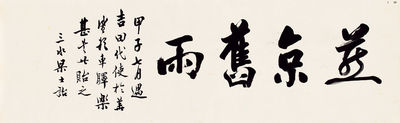 燕京舊雨
甲子七月遇
吉田代使於美
使館車驛樂
甚書此貽之
三水梁士詒